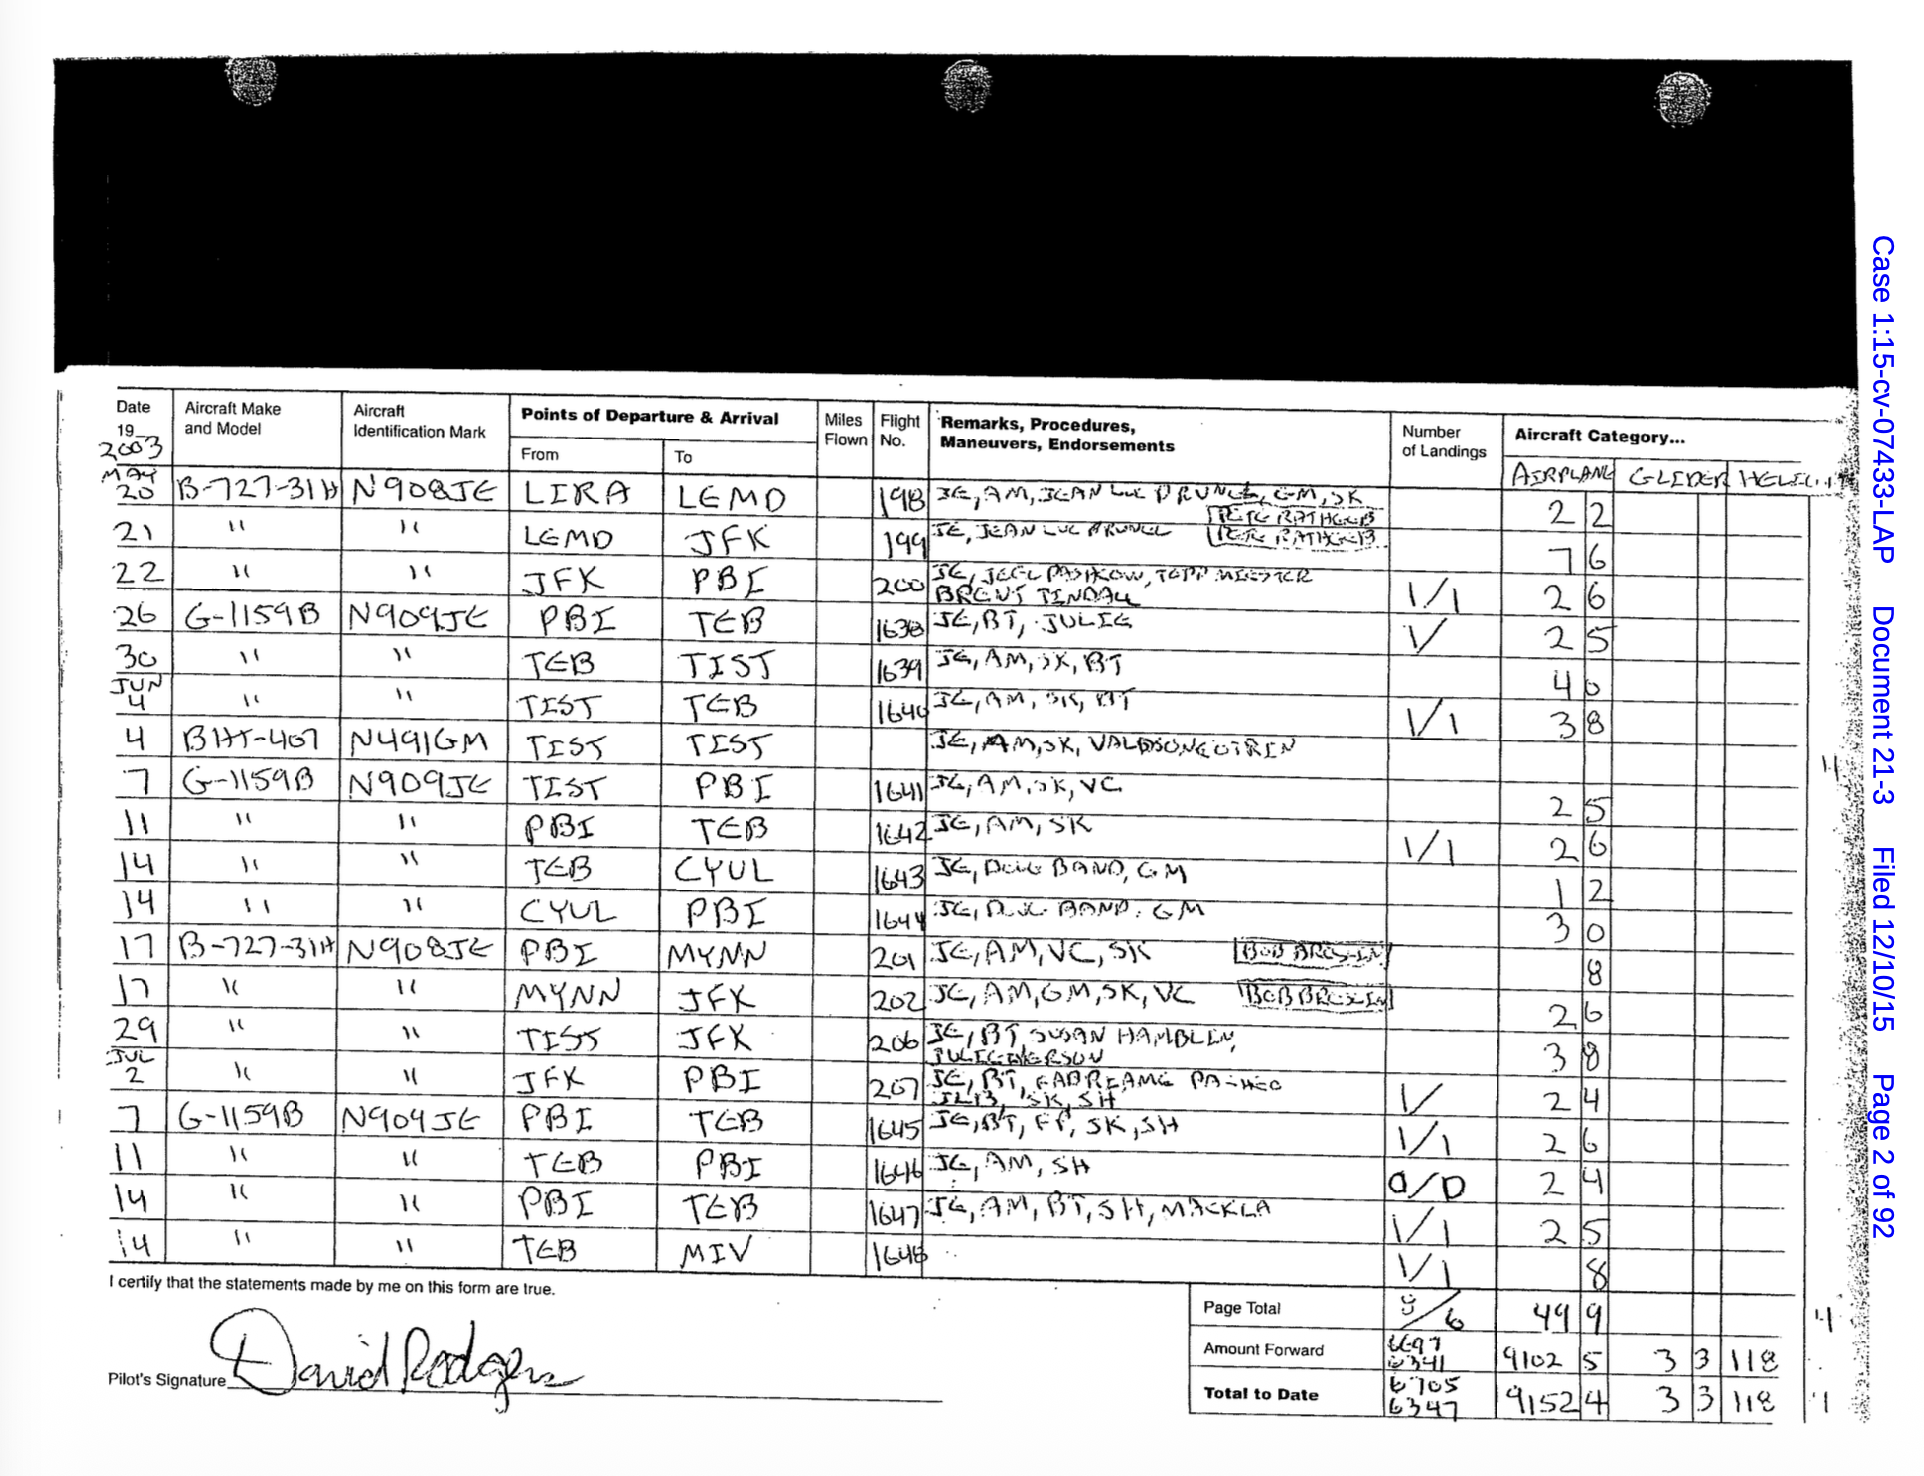 Case 1:15-cv-07433-LAP Document 21-3 Filed 12/10/15 Page 2 of 92
Date 19 2003 Aircraft Make and Model Aircraft Identification Mark Points of Departure & Arrival From To Miles Flown Flight No. Remarks, Procedures, Maneuvers, Endorsements Number of Landings Aircraft Category... AIRPLANE GLIDER
MAY 20 B-727-31H N908JE LIRA LEMD 198 JE, AM, JEAN LUC BRUNEL, GM, SK 2 2
PETE RATHGEB
21 " " LEMD JFK 199 JE, JEAN LUC BRUNEL PETE RATHGEB 7 6
22 " " JFK PBI 200 JE, JOEL PASHCOW, TODD MEISTER
BRENT TINDALL 1/1 2 6
26 G-1159B N909JE PBI TEB 1638 JE, BT, JULIE 1/ 2 5
30 " " TEB TIST 1639 JE, AM, SK, BT 4 0
JUN 4 " " TIST TEB 1640 JE, AM, SK, BT 1/1 3 8
4 BHT-407 N491GM TIST TIST JE, AM, SK, VALDSON
7 G-1159B N909JE TIST PBI 1641 JE, AM, SK, VC 2 5
11 " " PBI TEB 1642 JE, AM, SK 1/1 2 6
14 " " TEB CYUL 1643 JE, DOUG BAND, GM 1 2
14 " " CYUL PBI 1644 JE, BAND, GM 3 0
17 B-727-31H N908JE PBI MYNN 201 JE, AM, VC, SK BOB 8
17 " " MYNN JFK 202 JE, AM, GM, SK, VC BOB 2 6
29 " " TIST JFK 206 JE, BT SUSAN HAMBLIN,
JULIE 3 8
JUL 2 " " JFK PBI 207 JE, BT,
SK, SH 1/ 2 4
7 G-1159B N909JE PBI TEB 1645 JE, BT, FP, SK, SH 1/1 2 6
11 " " TEB PBI 1646 JE, AM, SH 0/0 2 4
14 " " PBI TEB 1647 JE, AM, BT, SH, 1/1 2 5
14 " " TEB MIV 1648 1/1 8
I certify that the statements made by me on this form are true.
Page Total /6 49 9 4
Amount Forward 6697 6341 9102 5 3 3 118
Pilot's Signature David Rodgers
Total to Date 6705 6347 9152 4 3 3 118